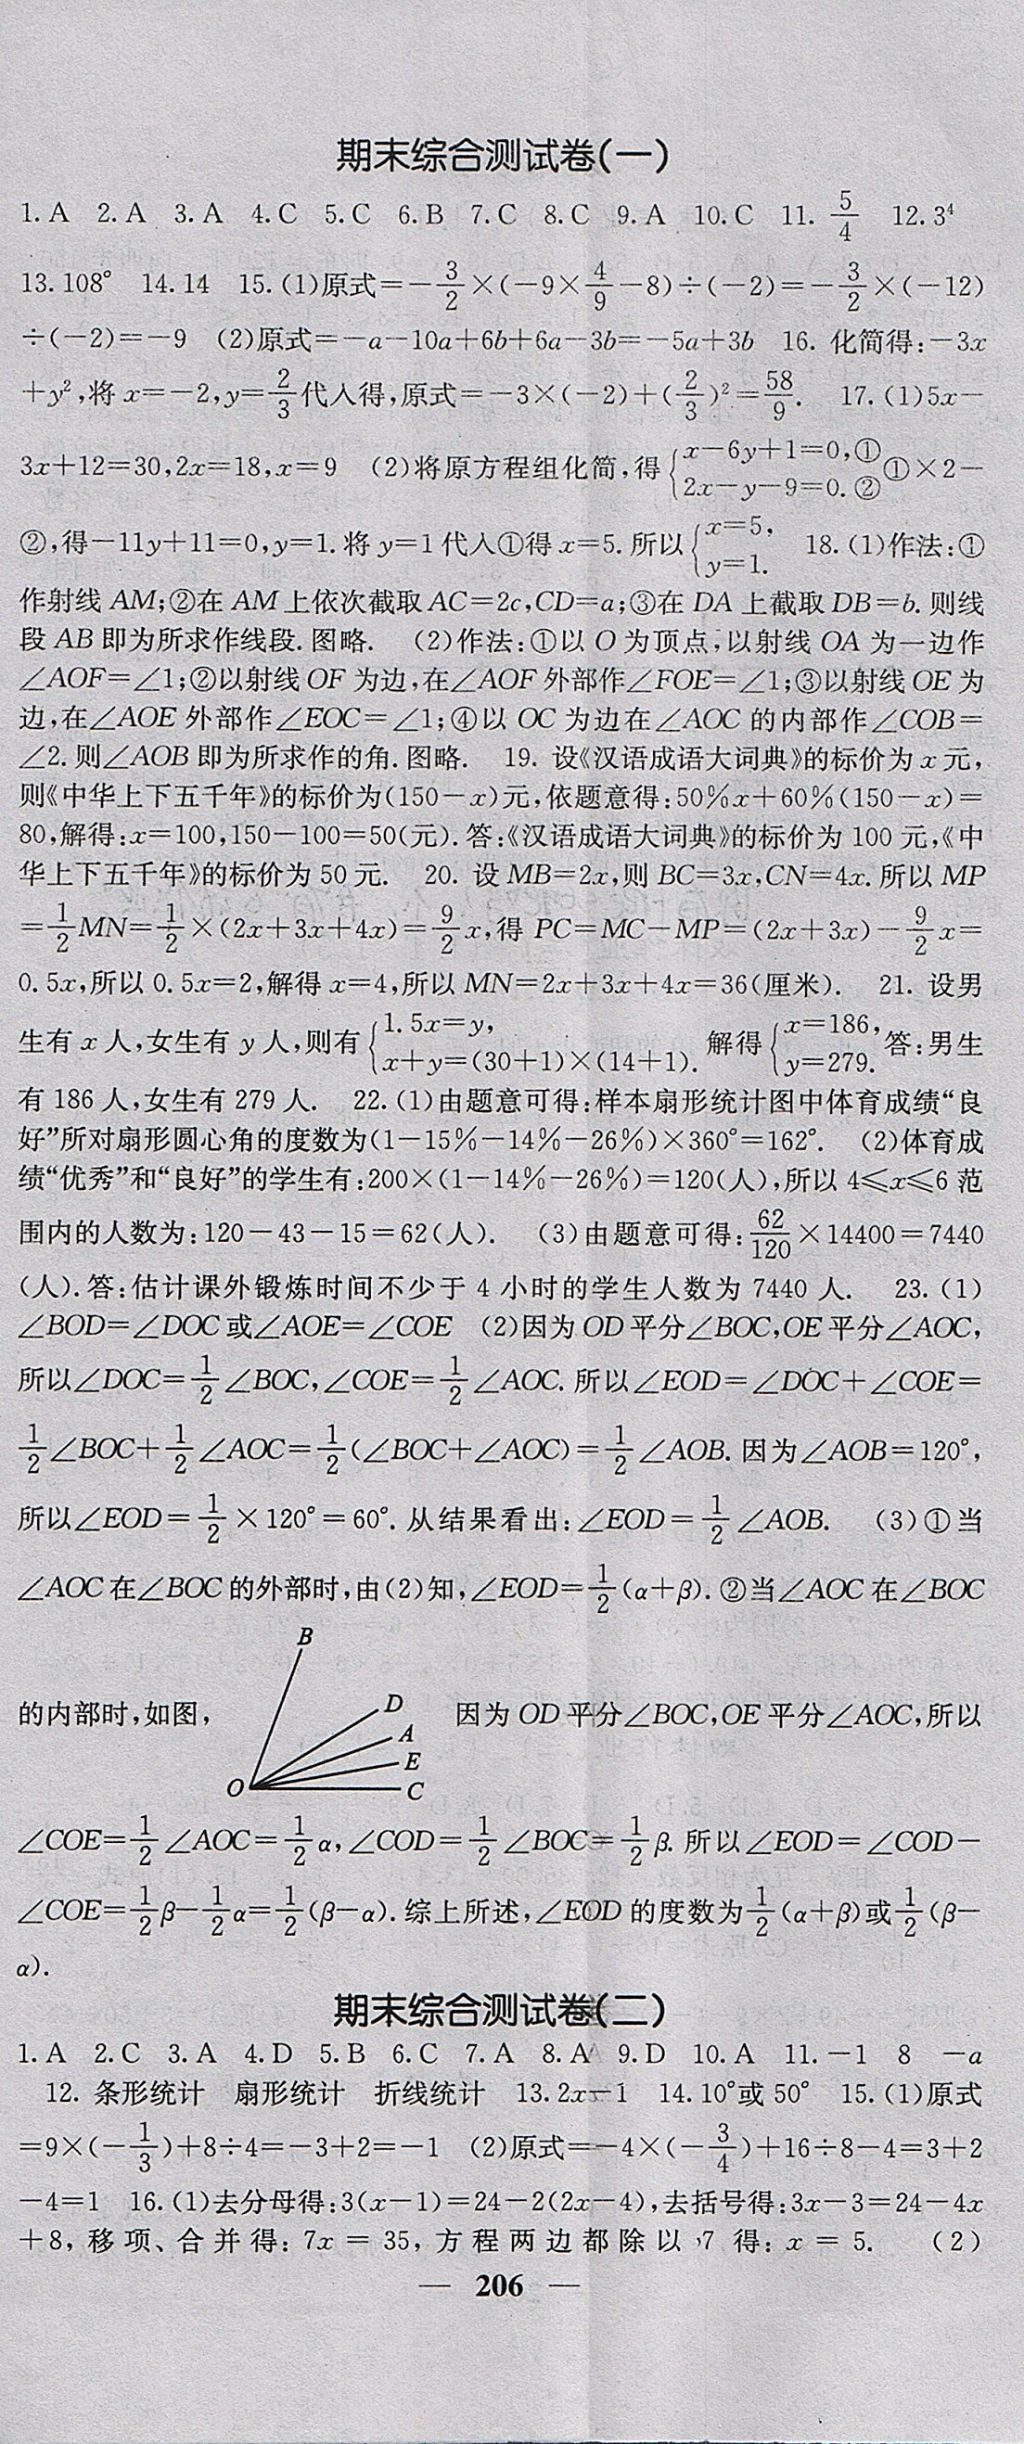 期末综合测试卷(一)
1. A 2. A 3. A 4. C 5. C 6. B 7. C 8. C 9. A 10. C 11. 5/4 12. 3⁴
13. 108° 14. 14 15. (1)原式=-3/2×(-9×4/9-8)÷(-2)=-3/2×(-12)
÷(-2)=-9 (2)原式=-a-10a+6b+6a-3b=-5a+3b 16. 化简得:-3x
+y²,将 x=-2,y=2/3代入得,原式=-3×(-2)+(2/3)²=58/9. 17. (1)5x-
3x+12=30,2x=18,x=9 (2)将原方程组化简,得{x-6y+1=0,① 2x-y-9=0.②①×2-
②,得-11y+11=0,y=1. 将 y=1 代入①得 x=5. 所以{x=5, y=1. 18. (1)作法:①
作射线 AM;②在 AM 上依次截取 AC=2c,CD=a;③在 DA 上截取 DB=b. 则线
段 AB 即为所求作线段. 图略. (2)作法:①以 O 为顶点,以射线 OA 为一边作
∠AOF=∠1;②以射线 OF 为边,在∠AOF 外部作∠FOE=∠1;③以射线 OE 为
边,在∠AOE 外部作∠EOC=∠1;④以 OC 为边在∠AOC 的内部作∠COB=
∠2. 则∠AOB 即为所求作的角. 图略. 19. 设《汉语成语大词典》的标价为 x 元,
则《中华上下五千年》的标价为(150-x)元,依题意得:50%x+60%(150-x)=
80,解得:x=100,150-100=50(元). 答:《汉语成语大词典》的标价为 100 元,《中
华上下五千年》的标价为 50 元. 20. 设 MB=2x,则 BC=3x,CN=4x. 所以 MP
=1/2MN=1/2×(2x+3x+4x)=9/2x,得 PC=MC-MP=(2x+3x)-9/2x=
0.5x,所以 0.5x=2,解得 x=4,所以 MN=2x+3x+4x=36(厘米). 21. 设男
生有 x 人,女生有 y 人,则有{1.5x=y, x+y=(30+1)×(14+1). 解得{x=186, y=279. 答:男生
有 186 人,女生有 279 人. 22. (1)由题意可得:样本扇形统计图中体育成绩“良
好”所对扇形圆心角的度数为(1-15%-14%-26%)×360°=162°. (2)体育成
绩“优秀”和“良好”的学生有:200×(1-14%-26%)=120(人),所以 4≤x≤6 范
围内的人数为:120-43-15=62(人). (3)由题意可得:62/120×14400=7440
(人). 答:估计课外锻炼时间不少于 4 小时的学生人数为 7440 人. 23. (1)
∠BOD=∠DOC 或∠AOE=∠COE (2)因为 OD 平分∠BOC,OE 平分∠AOC,
所以∠DOC=1/2∠BOC,∠COE=1/2∠AOC. 所以∠EOD=∠DOC+∠COE=
1/2∠BOC+1/2∠AOC=1/2(∠BOC+∠AOC)=1/2∠AOB. 因为∠AOB=120°,
所以∠EOD=1/2×120°=60°. 从结果看出:∠EOD=1/2∠AOB. (3)①当
∠AOC 在∠BOC 的外部时,由(2)知,∠EOD=1/2(α+β). ②当∠AOC 在∠BOC
B
D
的内部时,如图, 因为 OD 平分∠BOC,OE 平分∠AOC,所以
A
E
O C
∠COE=1/2∠AOC=1/2α,∠COD=1/2∠BOC=1/2β. 所以∠EOD=∠COD-
∠COE=1/2β-1/2α=1/2(β-α). 综上所述,∠EOD 的度数为1/2(α+β)或1/2(β-
α).
期末综合测试卷(二)
1. A 2. C 3. A 4. D 5. B 6. C 7. A 8. A 9. D 10. A 11. -1 8 -a
12. 条形统计 扇形统计 折线统计 13. 2x-1 14. 10°或 50° 15. (1)原式
=9×(-1/3)+8÷4=-3+2=-1 (2)原式=-4×(-3/4)+16÷8-4=3+2
-4=1 16. (1)去分母得:3(x-1)=24-2(2x-4),去括号得:3x-3=24-4x
+8,移项、合并得:7x=35,方程两边都除以 7 得:x=5. (2)
— 206 —